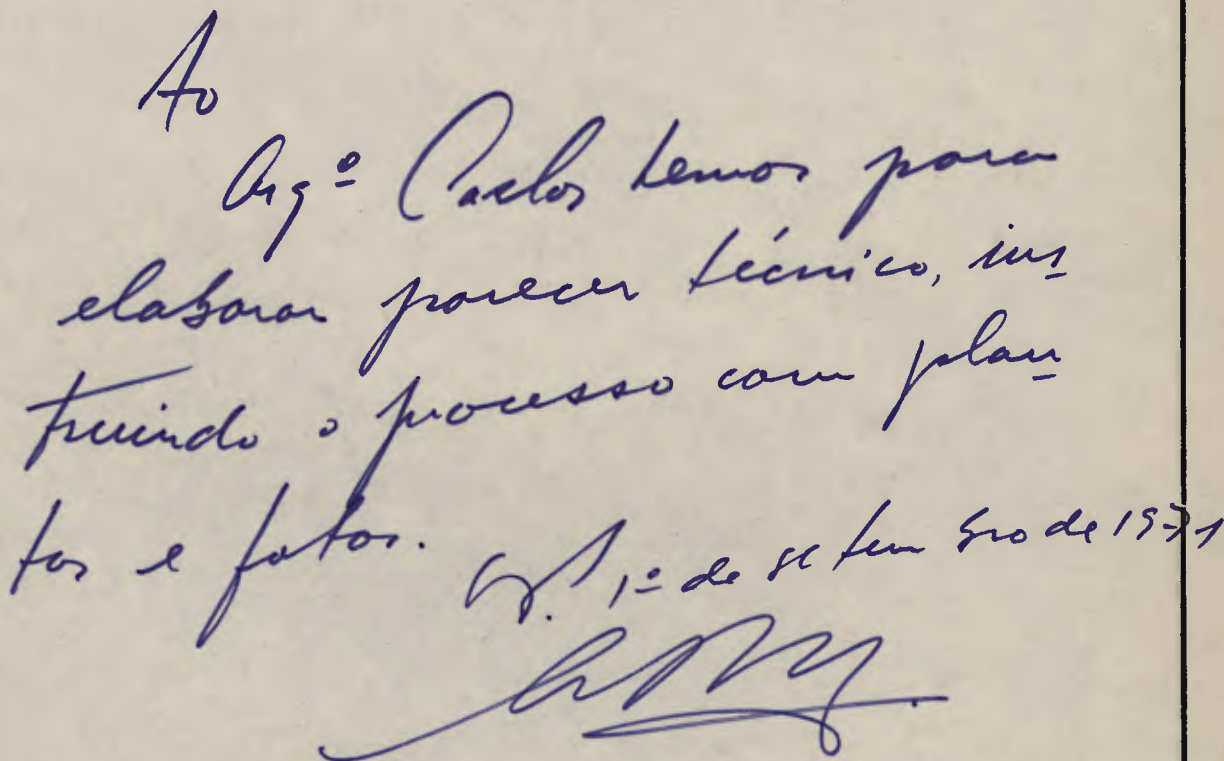 Ao
Arqº Carlos Lemos para
elaborar parecer técnico, ins
truindo o processo com plan
tas e fotos.
1º de setembro de 1971